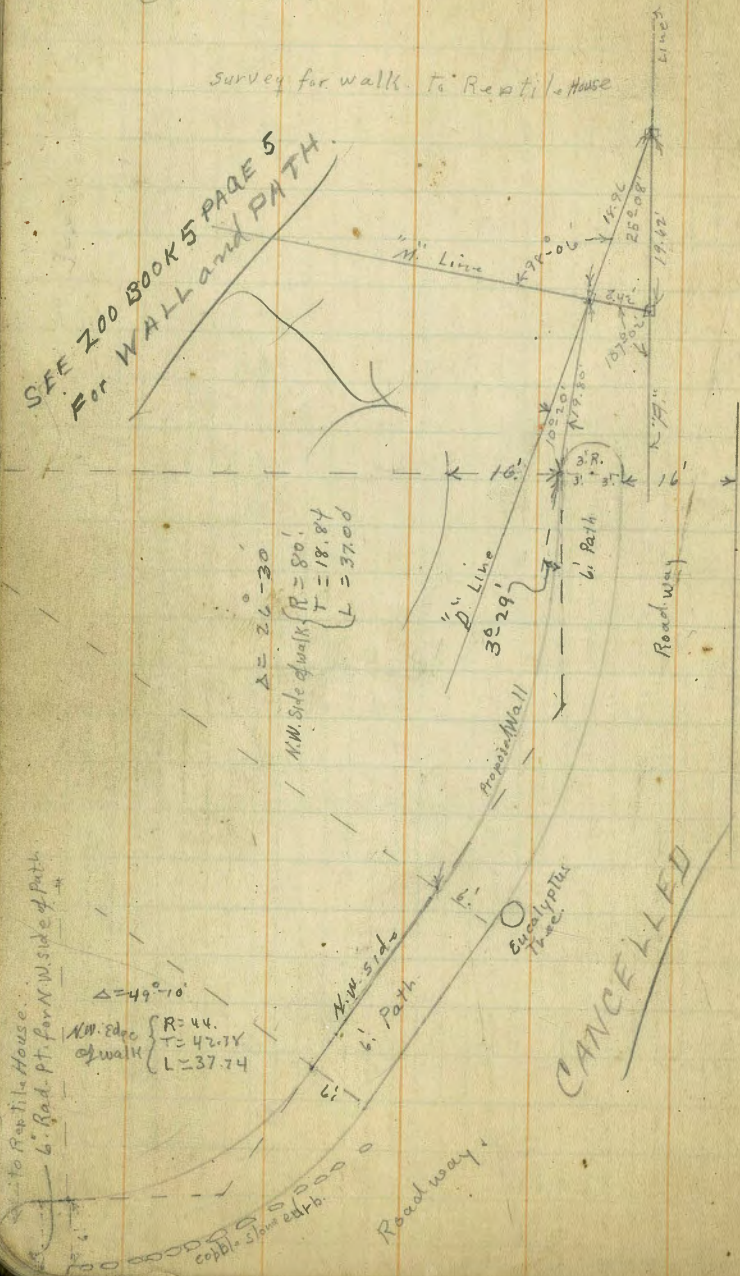 Survey for walk to Reptile House
SEE ZOO BOOK 5 PAGE 5
For WALL and PATH
Lines
18.96
25°-08'
19.62'
"M" Line
98°-06'
107°-02'
10°-20'
19.80'
"A"
16'
3'R.
3' 3'
16'
6' Path
Roadway
"D" Line
3°-29'
Δ = 26°-30'
N.W. Side of walk
R = 80'
T = 18.84
L = 37.00'
Proposed Wall
Eucalyptus
Tree.
N.W. side
6' Path
6'
CANCELLED
Δ = 49°-10'
N.W. Edge
of walk
R = 44.
L = 37.74
to Reptile House.
6' Rad. Pt. for N.W. side of Path
6'
cobble stone curb.
Roadway.